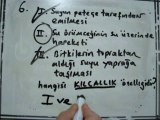 6. I. Suyun peçete tarafından
emilmesi
II. Su örümceğinin su üzerinde
hareketi
III. Bitkilerin topraktan
aldığı suyu yaprağa
taşıması
hangisi KILCALLIK özelliğidir?
I ve